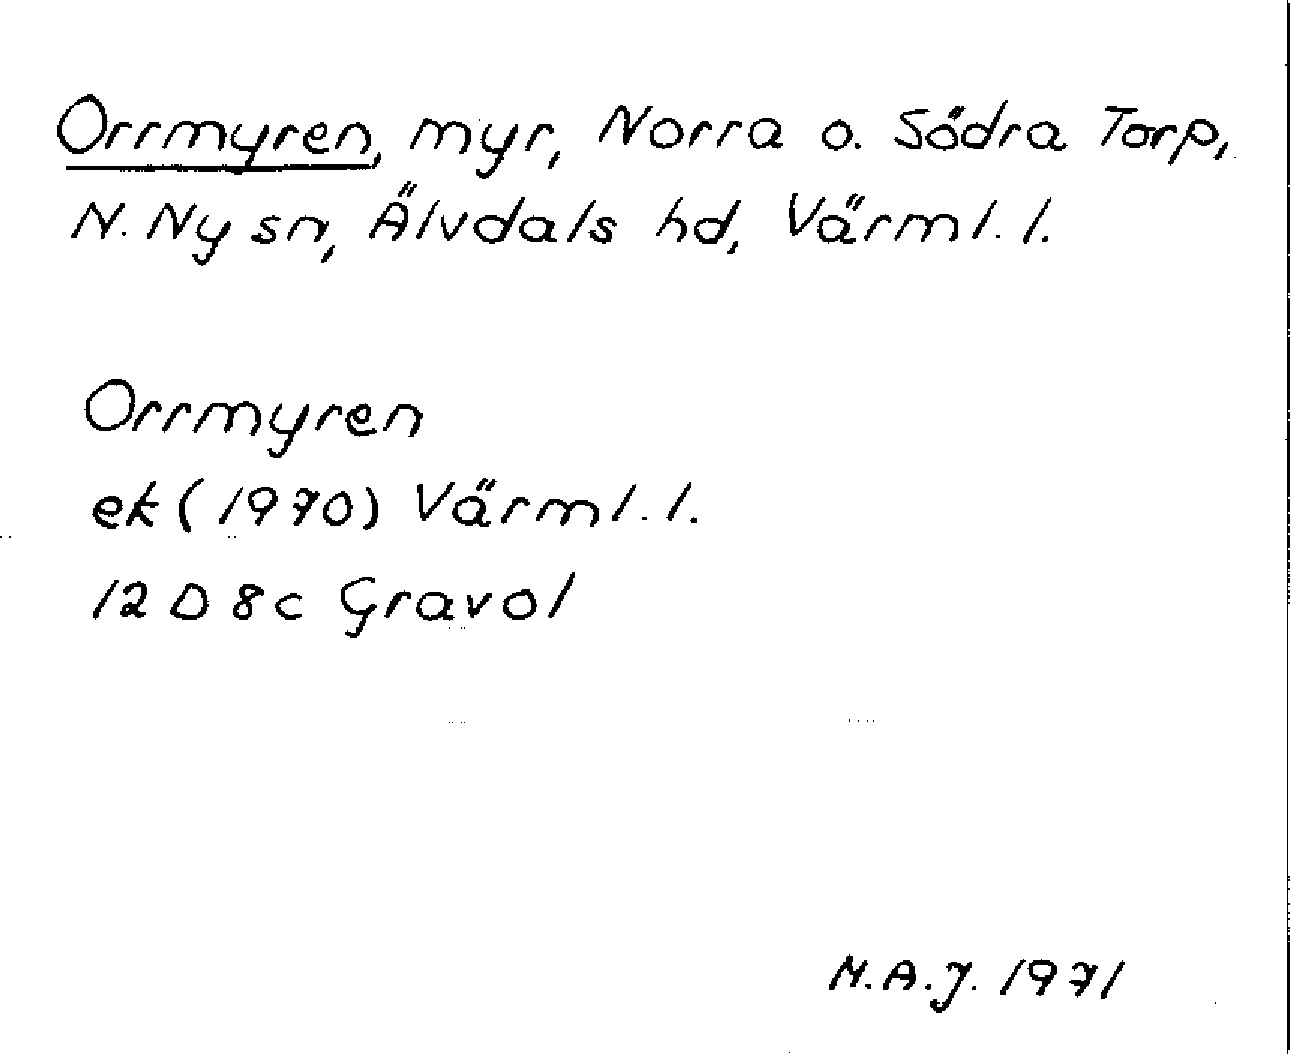 Orrmyren, myr, Norra o. Södra Torp,
N. Ny sn, Älvdals hd, Värml. l.
Orrmyren
ek (1970) Värml. l.
12 D 8c Gravol
M.A.J. 1971